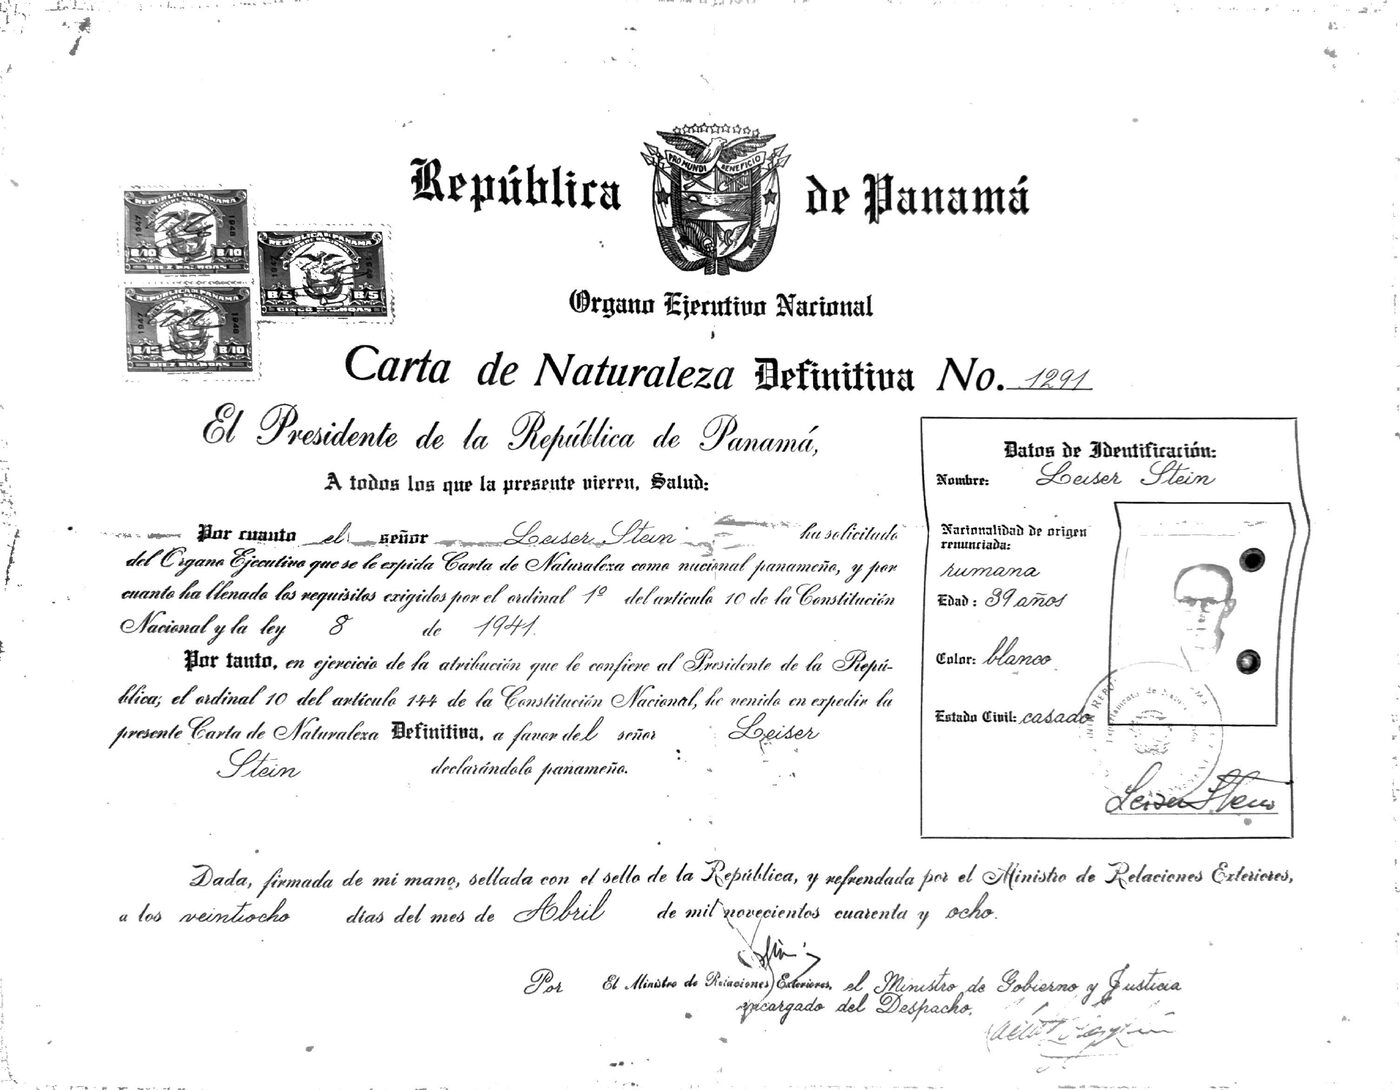 República de Panamá
PRO MUNDI BENEFICIO
Organo Ejecutivo Nacional
REPUBLICA DE PANAMA
1947 1948
B/10 B/10
DIEZ BALBOAS
REPUBLICA DE PANAMA
1947 1948
B/5 B/5
CINCO BALBOAS
REPUBLICA DE PANAMA
1947 1948
B/10 B/10
DIEZ BALBOAS
Carta de Naturaleza Definitiva No. 1291
El Presidente de la República de Panamá,
A todos los que la presente vieren, Salud:
Por cuanto el señor Leiser Stein ha solicitado
del Organo Ejecutivo que se le expida Carta de Naturaleza como nacional panameño, y por
cuanto ha llenado los requisitos exigidos por el ordinal 1º del artículo 10 de la Constitución
Nacional y la ley 8 de 1941.
Por tanto, en ejercicio de la atribución que le confiere al Presidente de la Repú-
blica, el ordinal 10 del artículo 144 de la Constitución Nacional, he venido en expedir la
presente Carta de Naturaleza Definitiva, a favor del señor Leiser
Stein declarándolo panameño.
Datos de Identificación:
Nombre: Leiser Stein
Nacionalidad de origen
renunciada:
rumana
Edad: 39 años
Color: blanco
Estado Civil: casado
Leiser Stein
Dada, firmada de mi mano, sellada con el sello de la República, y refrendada por el Ministro de Relaciones Exteriores,
a los veintiocho días del mes de Abril de mil novecientos cuarenta y ocho.
Por El Ministro de Relaciones Exteriores, el Ministro de Gobierno y Justicia
encargado del Despacho,